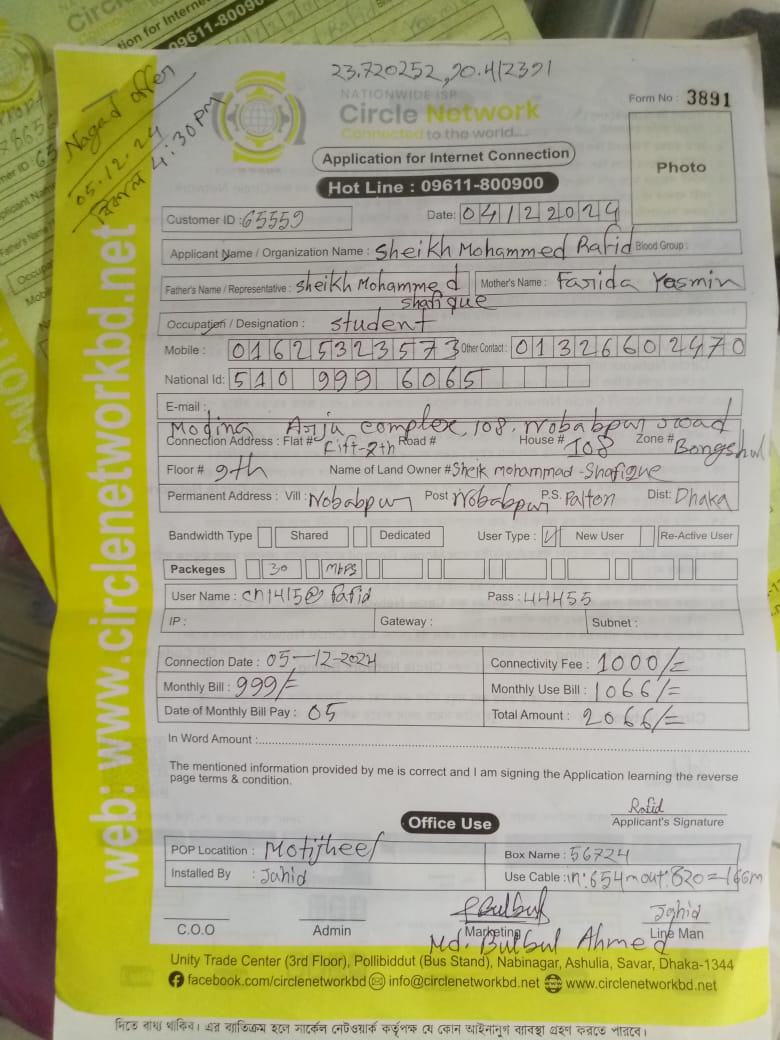 tion for Internet
09611-8009
23.720252, 90.412391
Nagad offer
05.12.24
বিকাল 4:30pm
NATIONWIDE ISP
Circle Network
Connected to the world....
Form No : 3891
Photo
Application for Internet Connection
Hot Line : 09611-800900
Customer ID : 65559
Date: 04122024
Applicant Name / Organization Name : Sheikh Mohammed Rafid Blood Group :
Father's Name / Representative : Sheikh Mohammed Shafique Mother's Name : Farida Yesmin
Occupation / Designation : student
Mobile : 01625323573 Other Contact : 01326602470
National Id: 510 999 6065
E-mail :
Modina Asja complex, 108, Nobabpur road
Connection Address : Flat # Lift-8th Road # House # 108 Zone # Bongshal
Floor # 9th Name of Land Owner # Sheik mohammad Shafique
Permanent Address : Vill : Nobabpur Post Nobabpur P.S. Palton Dist: Dhaka
Bandwidth Type Shared Dedicated User Type : New User Re-Active User
Packeges 30 Mbps
User Name : cn1415@rafid Pass : 44455
IP : Gateway : Subnet :
Connection Date : 05-12-2024 Connectivity Fee : 1000/=
Monthly Bill : 999/= Monthly Use Bill : 1066/=
Date of Monthly Bill Pay : 05 Total Amount : 2066/=
In Word Amount :
The mentioned information provided by me is correct and I am signing the Application learning the reverse
page terms & condition.
Rafid
Applicant's Signature
Office Use
POP Locatition : Motijheel Box Name : 56724
Installed By : Jahid Use Cable : in:654m out:820=166m
Bulbul Jahid
C.O.O Admin Marketing Line Man
Md. Bulbul Ahmed
Unity Trade Center (3rd Floor), Pollibiddut (Bus Stand), Nabinagar, Ashulia, Savar, Dhaka-1344
facebook.com/circlenetworkbd info@circlenetworkbd.net www.circlenetworkbd.net
web: www.circlenetworkbd.net
দিতে বাধ্য থাকিব। এর ব্যতিক্রম হলে সার্কেল নেটওয়ার্ক কর্তৃপক্ষ যে কোন আইনানুগ ব্যবস্থা গ্রহণ করতে পারবে।